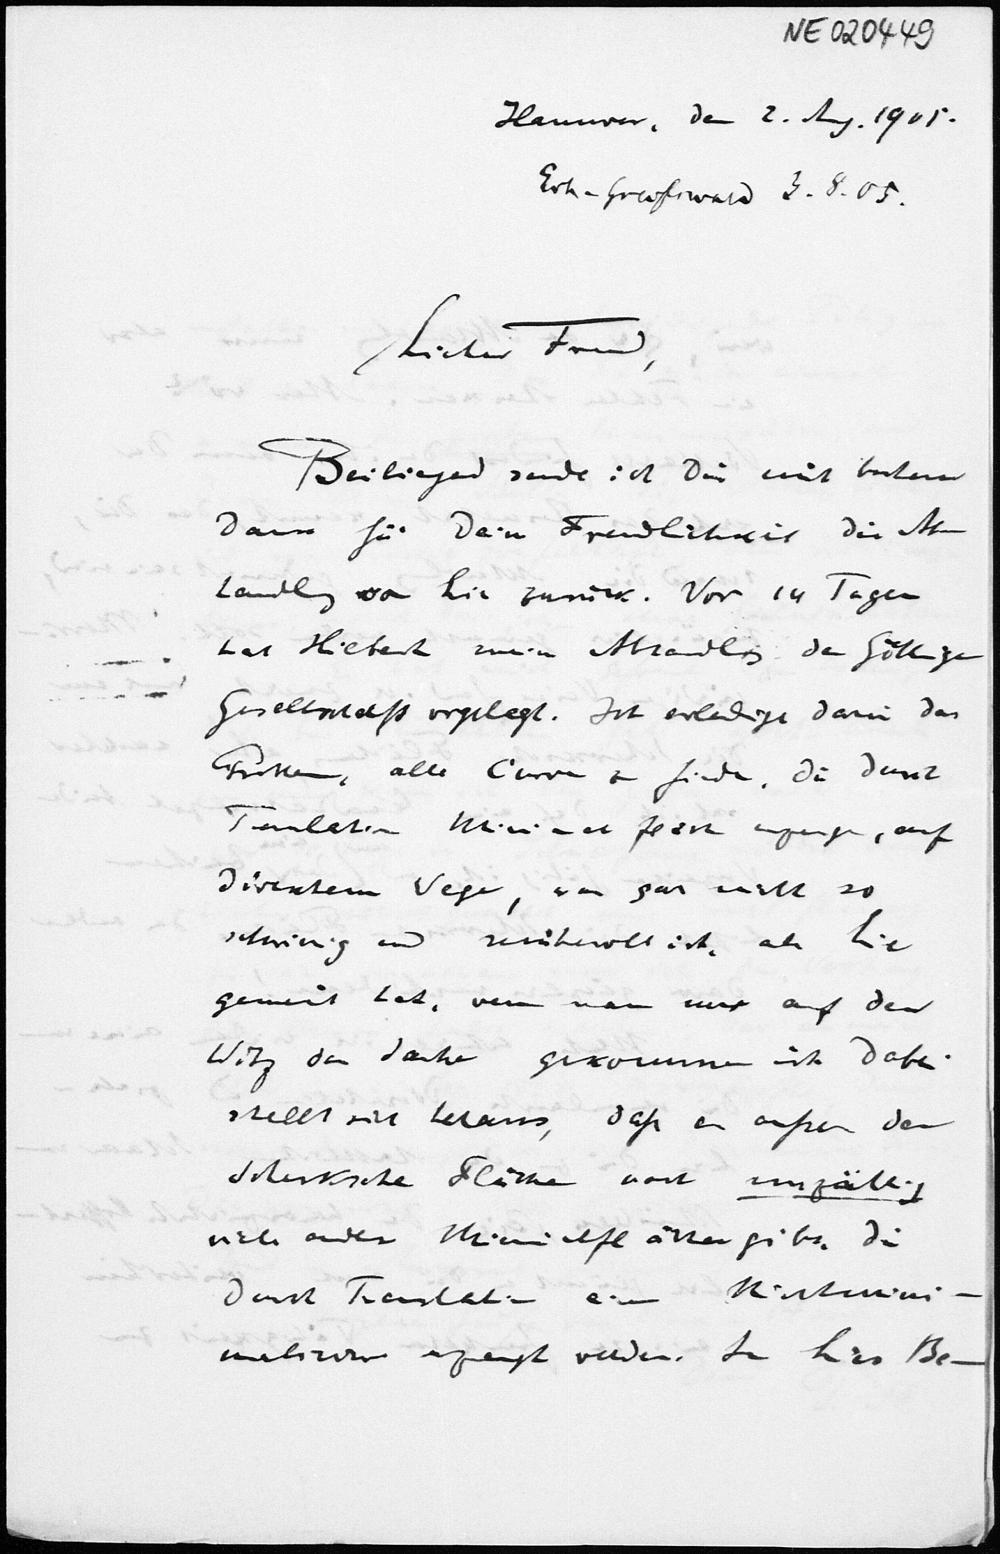 NE020449
Hannover, den 2. Aug. 1905.
Erh. Greifswald 3.8.05.
Lieber Freund,
Beiliegend sende ich Dir mit bestem
Dank für Deine Freundlichkeit die Ab-
handlung von Lie zurück. Vor 14 Tagen
hat Hilbert meine Abhandlung der Göttinger
Gesellschaft vorgelegt. Ich erledige darin das
Problem, alle Curven zu finden, die durch
Translation Minimalflächen erzeugen, auf
direktem Wege, was gar nicht so
schwierig und mühevoll ist, als Lie
gemeint hat, wenn man nur auf den
Witz der Sache gekommen ist. Dabei
stellt sich heraus, daß es außer der
Scherkschen Fläche noch unzählig
viele andere Minimalflächen gibt, die
durch Translation einer Nichtmini-
malcurve erzeugt werden. In Lies Be-